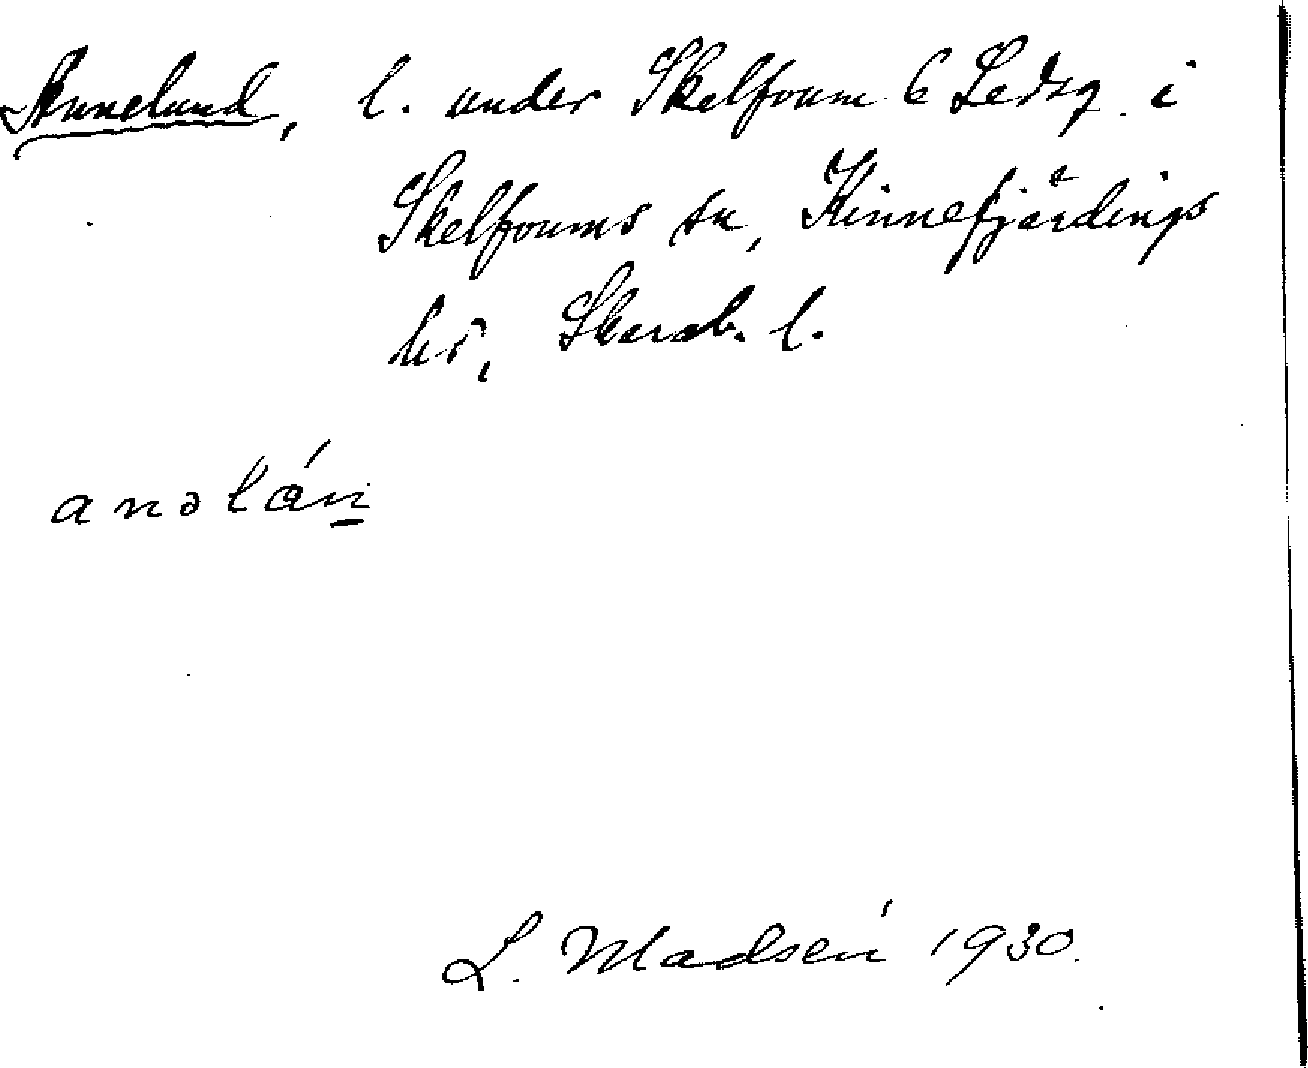 Annelund, l. under Skelfvum 6 Ledsg. i
Skelfvums sn, Kinnefjärdings
hd, Skarab. l.
anəlán
L. Madsén 1930.